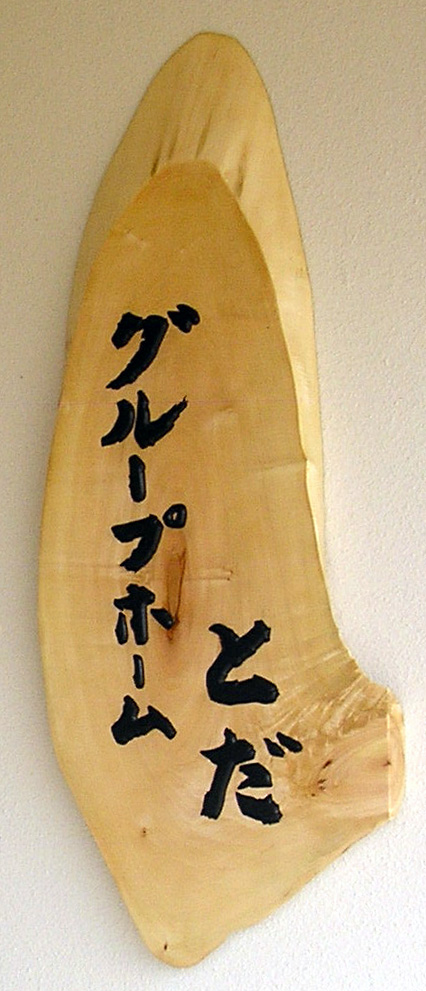 グループホーム
とだ